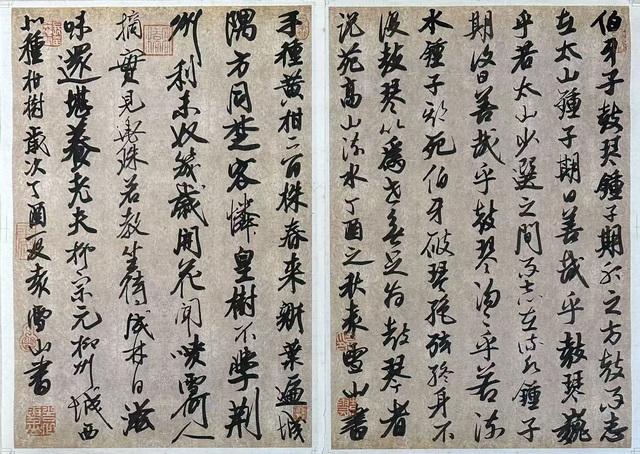 伯牙子鼓琴鍾子期聽之方鼓而志
在太山鍾子期曰善哉乎鼓琴巍
乎若太山少選之間而志在流水鍾子
期復曰善哉乎鼓琴湯湯乎若流
水鍾子期死伯牙破琴絕弦終身不
復鼓琴以為世無足為鼓琴者
說苑高山流水丁酉之秋來雪山書
手種黃柑二百株春來新葉遍城
隅方同楚客憐皇樹不學荊
州利木奴幾歲開花聞噴雪何人
摘實見垂珠若教坐待成林日滋
味還堪養老夫柳宗元柳州城西
北種柑樹歲次丁酉夏亥雪山書